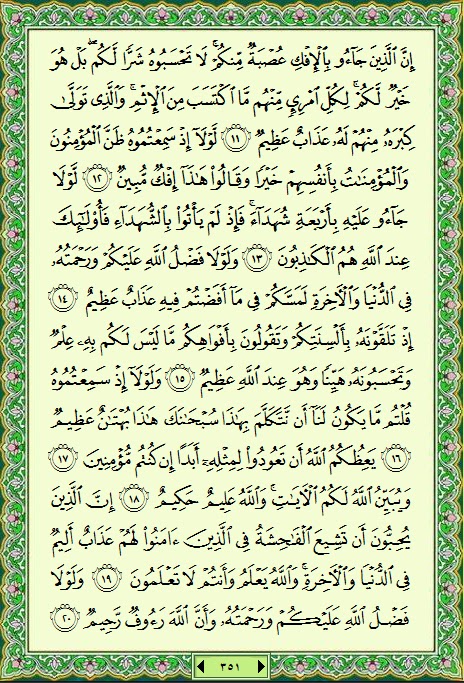 إِنَّ ٱلَّذِينَ جَآءُو بِٱلْإِفْكِ عُصْبَةٌ مِّنكُمْ ۚ لَا تَحْسَبُوهُ شَرًّا لَّكُم ۖ بَلْ هُوَ
خَيْرٌ لَّكُمْ ۚ لِكُلِّ ٱمْرِئٍ مِّنْهُم مَّا ٱكْتَسَبَ مِنَ ٱلْإِثْمِ ۚ وَٱلَّذِى تَوَلَّىٰ
كِبْرَهُۥ مِنْهُمْ لَهُۥ عَذَابٌ عَظِيمٌ ١١ لَّوْلَآ إِذْ سَمِعْتُمُوهُ ظَنَّ ٱلْمُؤْمِنُونَ
وَٱلْمُؤْمِنَـٰتُ بِأَنفُسِهِمْ خَيْرًا وَقَالُوا۟ هَـٰذَآ إِفْكٌ مُّبِينٌ ١٢ لَّوْلَا
جَآءُو عَلَيْهِ بِأَرْبَعَةِ شُهَدَآءَ ۚ فَإِذْ لَمْ يَأْتُوا۟ بِٱلشُّهَدَآءِ فَأُو۟لَـٰٓئِكَ
عِندَ ٱللَّهِ هُمُ ٱلْكَـٰذِبُونَ ١٣ وَلَوْلَا فَضْلُ ٱللَّهِ عَلَيْكُمْ وَرَحْمَتُهُۥ
فِى ٱلدُّنْيَا وَٱلْـَٔاخِرَةِ لَمَسَّكُمْ فِى مَآ أَفَضْتُمْ فِيهِ عَذَابٌ عَظِيمٌ ١٤
إِذْ تَلَقَّوْنَهُۥ بِأَلْسِنَتِكُمْ وَتَقُولُونَ بِأَفْوَاهِكُم مَّا لَيْسَ لَكُم بِهِۦ عِلْمٌ
وَتَحْسَبُونَهُۥ هَيِّنًا وَهُوَ عِندَ ٱللَّهِ عَظِيمٌ ١٥ وَلَوْلَآ إِذْ سَمِعْتُمُوهُ
قُلْتُم مَّا يَكُونُ لَنَآ أَن نَّتَكَلَّمَ بِهَـٰذَا سُبْحَـٰنَكَ هَـٰذَا بُهْتَـٰنٌ عَظِيمٌ
١٦ يَعِظُكُمُ ٱللَّهُ أَن تَعُودُوا۟ لِمِثْلِهِۦٓ أَبَدًا إِن كُنتُم مُّؤْمِنِينَ ١٧
وَيُبَيِّنُ ٱللَّهُ لَكُمُ ٱلْـَٔايَـٰتِ ۚ وَٱللَّهُ عَلِيمٌ حَكِيمٌ ١٨ إِنَّ ٱلَّذِينَ
يُحِبُّونَ أَن تَشِيعَ ٱلْفَـٰحِشَةُ فِى ٱلَّذِينَ ءَامَنُوا۟ لَهُمْ عَذَابٌ أَلِيمٌ
فِى ٱلدُّنْيَا وَٱلْـَٔاخِرَةِ ۚ وَٱللَّهُ يَعْلَمُ وَأَنتُمْ لَا تَعْلَمُونَ ١٩ وَلَوْلَا
فَضْلُ ٱللَّهِ عَلَيْكُمْ وَرَحْمَتُهُۥ وَأَنَّ ٱللَّهَ رَءُوفٌ رَّحِيمٌ ٢٠
٣٥١